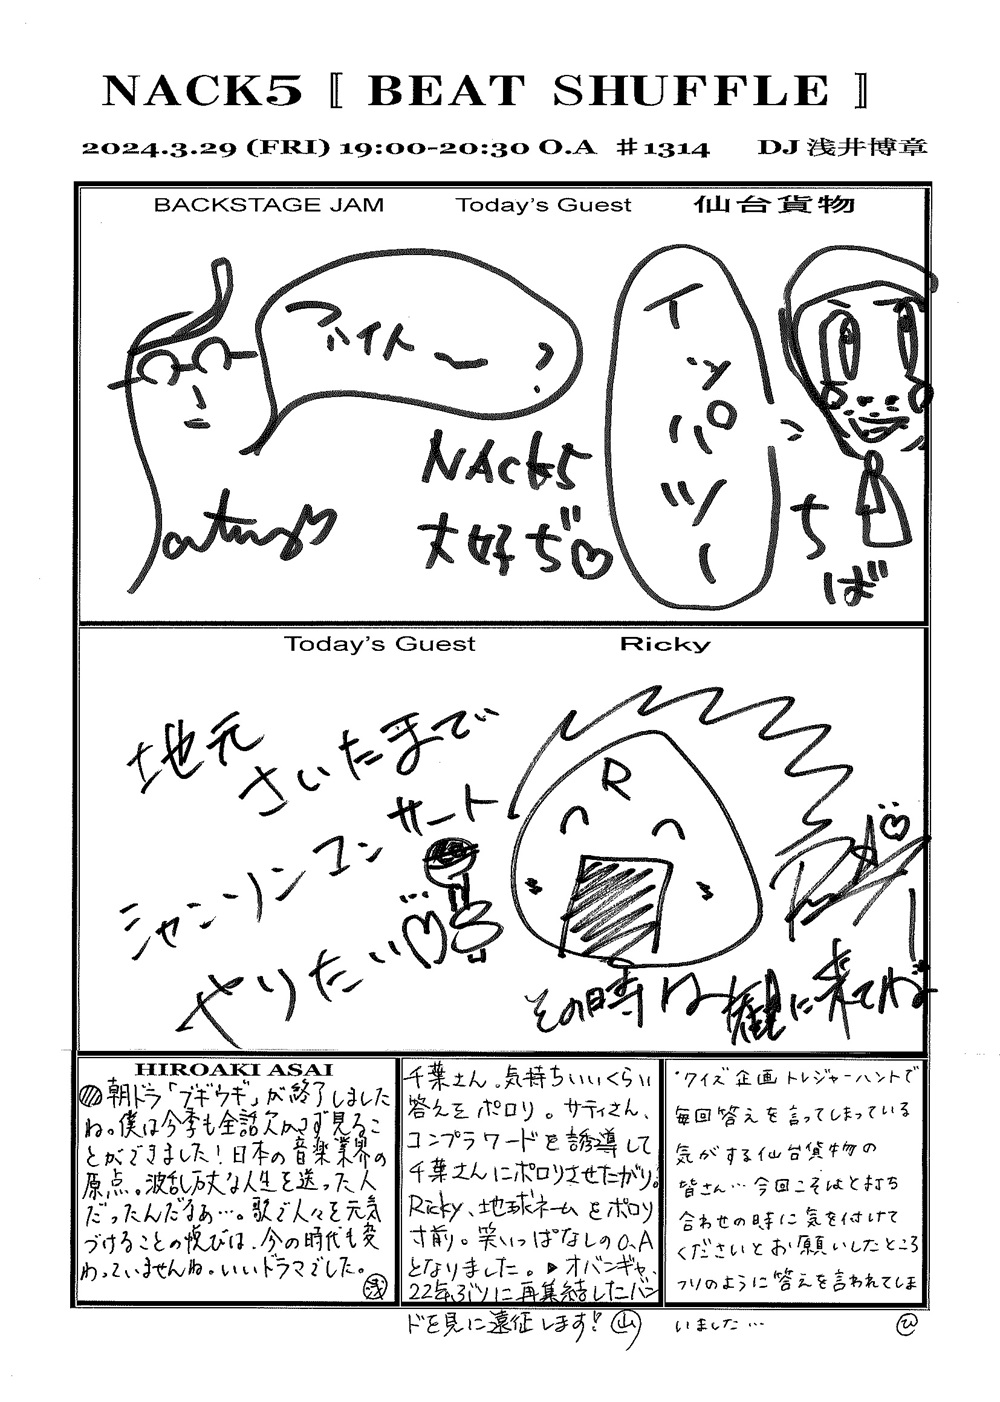 NACK5〚 BEAT SHUFFLE 〛
2024.3.29 (FRI) 19:00-20:30 O.A ♯1314 DJ 浅井博章
BACKSTAGE JAM Today's Guest 仙台貨物
ファイト〜?
イッパツー
NACK5
大好ぢ♡
ちば
Today's Guest Ricky
地元
さいたまで
シャンソンコンサート
やりたい♡
R
その時は観に来てね
HIROAKI ASAI
朝ドラ「ブギウギ」が終了しました
ね。僕は今季も全話欠かさず見るこ
とができました！日本の音楽業界の
原点。波乱万丈な人生を送った人
だったんだなぁ…。歌で人々を元気
づけることの悦びは、今の時代も変
わっていませんね。いいドラマでした。
浅
千葉さん。気持ちいいくらい
答えをポロリ。サティさん、
コンプラワードを誘導して
千葉さんにポロリさせたがり。
Ricky、地球ネームをポロリ
寸前。笑いっぱなしのO.A
となりました。▶オバンギャ、
22年ぶりに再集結したバン
ドを見に遠征します！ 山
クイズ企画トレジャーハントで
毎回答えを言ってしまっている
気がする仙台貨物の
皆さん…今回こそはと打ち
合わせの時に気を付けて
くださいとお願いしたところ
フリのように答えを言われてしま
いました… ひ